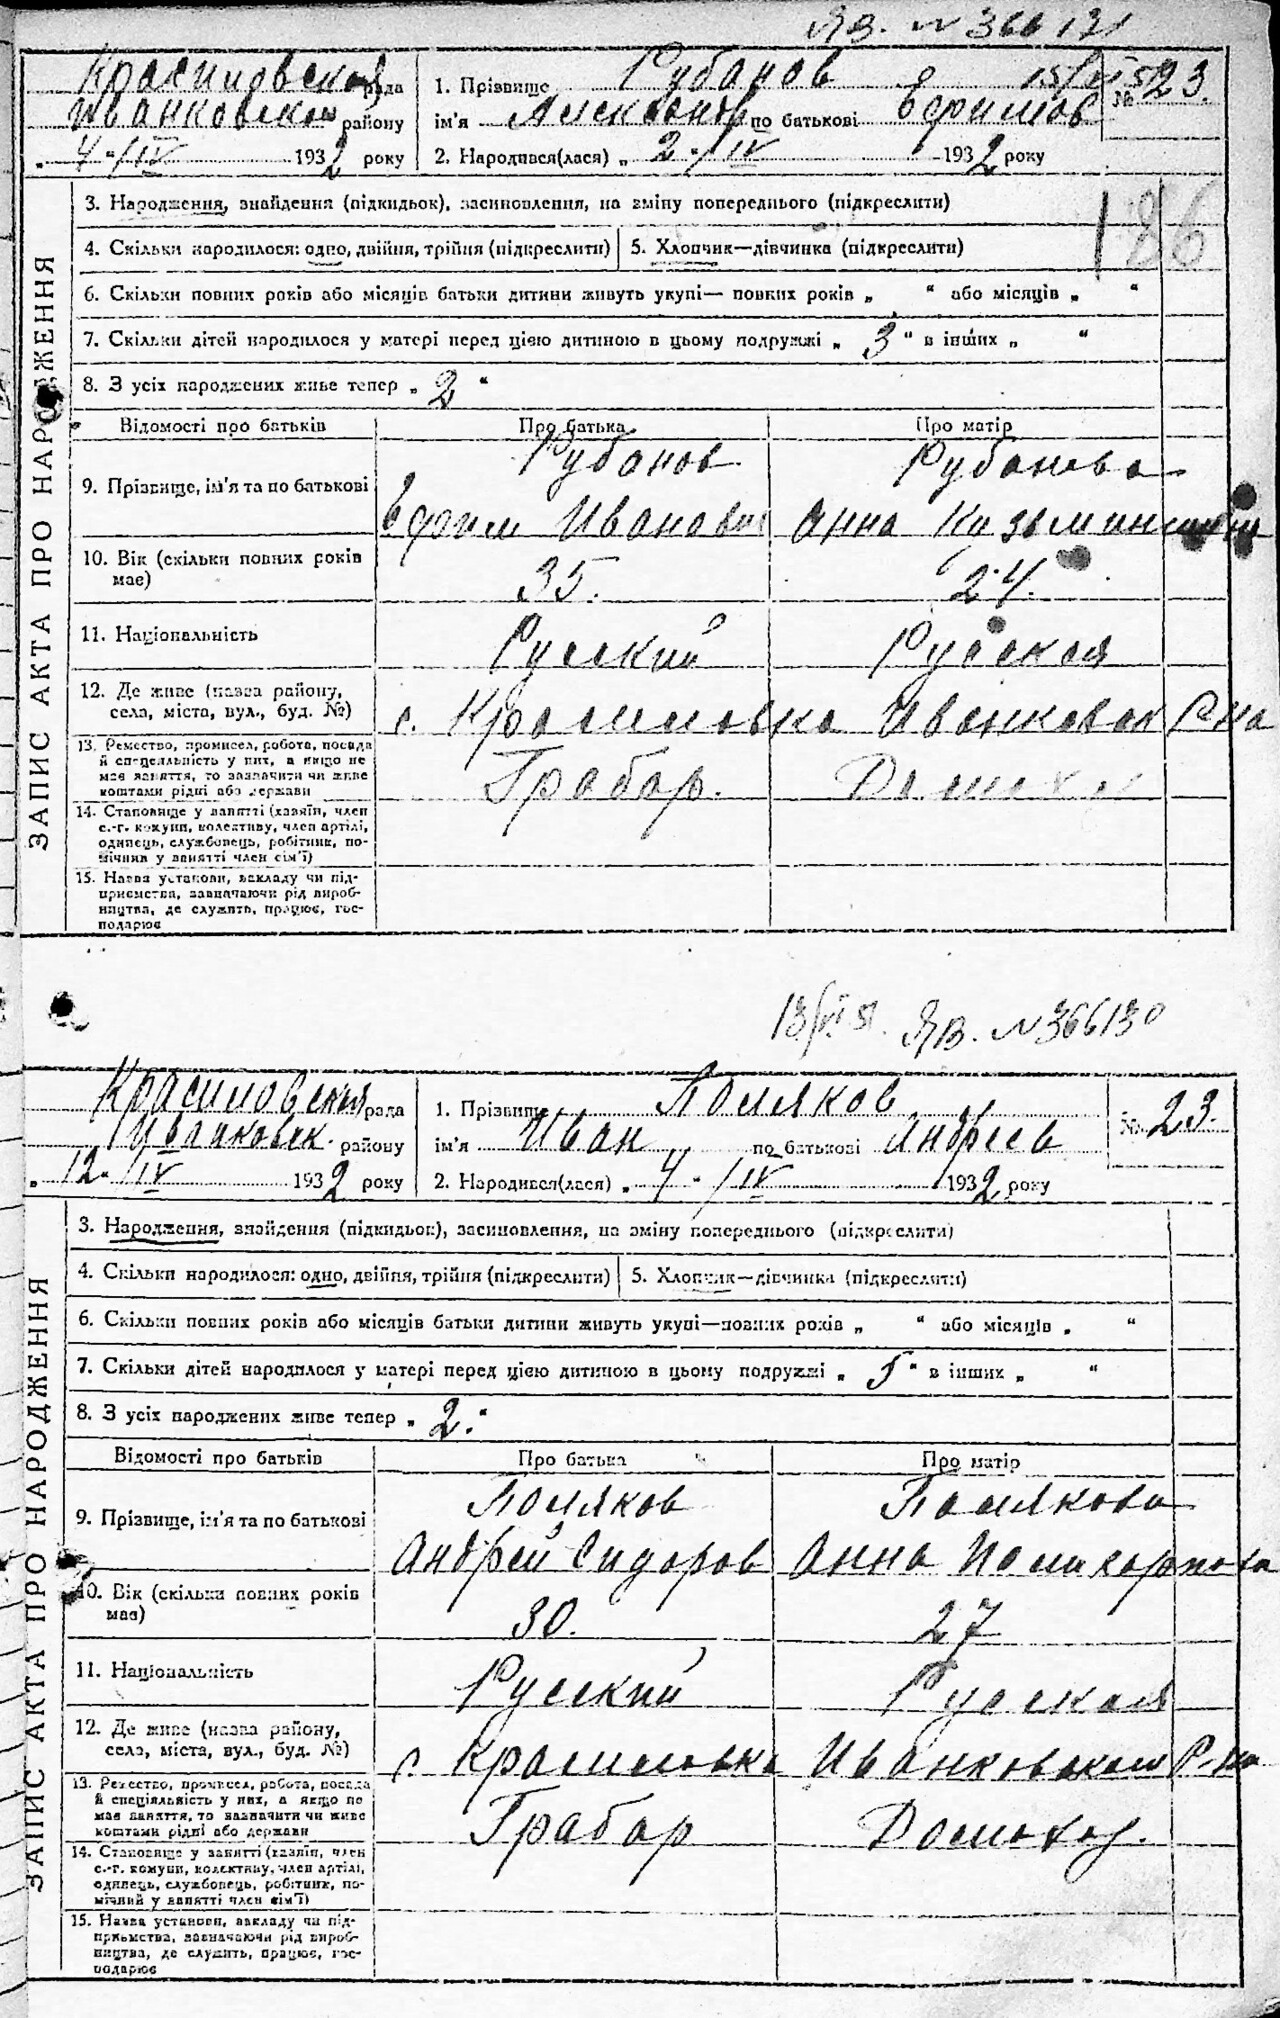 ЯВ. № 366121
Красиловская рада 1. Прізвище Рубанов 15/VI 51 № 23.
Иванковском району ім'я Александр по батькові Ефимов
„ 4 " / IV 1932 року 2. Народився(лася) „ 2 " / IV 1932 року
186
3. Народження, знайдення (підкидьок), засиновлення, на зміну попереднього (підкреслити)
4. Скільки народилося: одно, двійня, трійня (підкреслити) 5. Хлопчик—дівчинка (підкреслити)
6. Скільки повних років або місяців батьки дитини живуть укупі— повних років „ " або місяців „ "
7. Скільки дітей народилося у матері перед цією дитиною в цьому подружжі „ 3 " в інших „ "
8. З усіх народжених живе тепер „ 2 "
ЗАПИС АКТА ПРО НАРОДЖЕННЯ
Відомості про батьків Про батька Про матір
Рубанов Рубанова
9. Прізвище, ім'я та по батькові
Ефим Иванович Анна
10. Вік (скільки повних років має) 35. 24.
11. Національність Руский Руская
12. Де живе (назва району, села, міста, вул., буд. №) с. Красиловка Иванковск Р-на
13. Ремество, промисел, робота, посада
й спеціяльність у них, а якщо не
має заняття, то зазначити чи живе
коштами рідні або держави
Грабар.
14. Становище у занятті (хазяїн, член
с.-г. комуни, колективу, член артілі,
одинець, службовець, робітник, по-
мічник у занятті член сім'ї)
15. Назва установи, закладу чи під-
приємства, зазначаючи рід вироб-
ництва, де служить, працює, гос-
подарює
13/VI 51. ЯВ. № 366130
Красиловская рада 1. Прізвище Поляков № 23.
Иванковск. району ім'я Иван по батькові Андреев
„ 12 " / IV 1932 року 2. Народився(лася) „ 4 " / IV 1932 року
3. Народження, знайдення (підкидьок), засиновлення, на зміну попереднього (підкреслити)
4. Скільки народилося: одно, двійня, трійня (підкреслити) 5. Хлопчик—дівчинка (підкреслити)
6. Скільки повних років або місяців батьки дитини живуть укупі—повних років „ " або місяців „ "
7. Скільки дітей народилося у матері перед цією дитиною в цьому подружжі „ 5 " в інших „ "
8. З усіх народжених живе тепер „ 2. "
ЗАПИС АКТА ПРО НАРОДЖЕННЯ
Відомості про батьків Про батька Про матір
Поляков Полякова
9. Прізвище, ім'я та по батькові
Андрей Сидоров Анна Поликарпова
10. Вік (скільки повних років має) 30. 27
11. Національність Руский Руская
12. Де живе (назва району, села, міста, вул., буд. №) с. Красиловка Иванковском Р-на
13. Ремество, промисел, робота, посада
й спеціяльність у них, а якщо не
має заняття, то зазначити чи живе
коштами рідні або держави
Грабар Домохоз.
14. Становище у занятті (хазяїн, член
с.-г. комуни, колективу, член артілі,
одинець, службовець, робітник, по-
мічний у занятті член сім'ї)
15. Назва установи, закладу чи під-
приємства, зазначаючи рід вироб-
ництва, де служить, працює, гос-
подарює